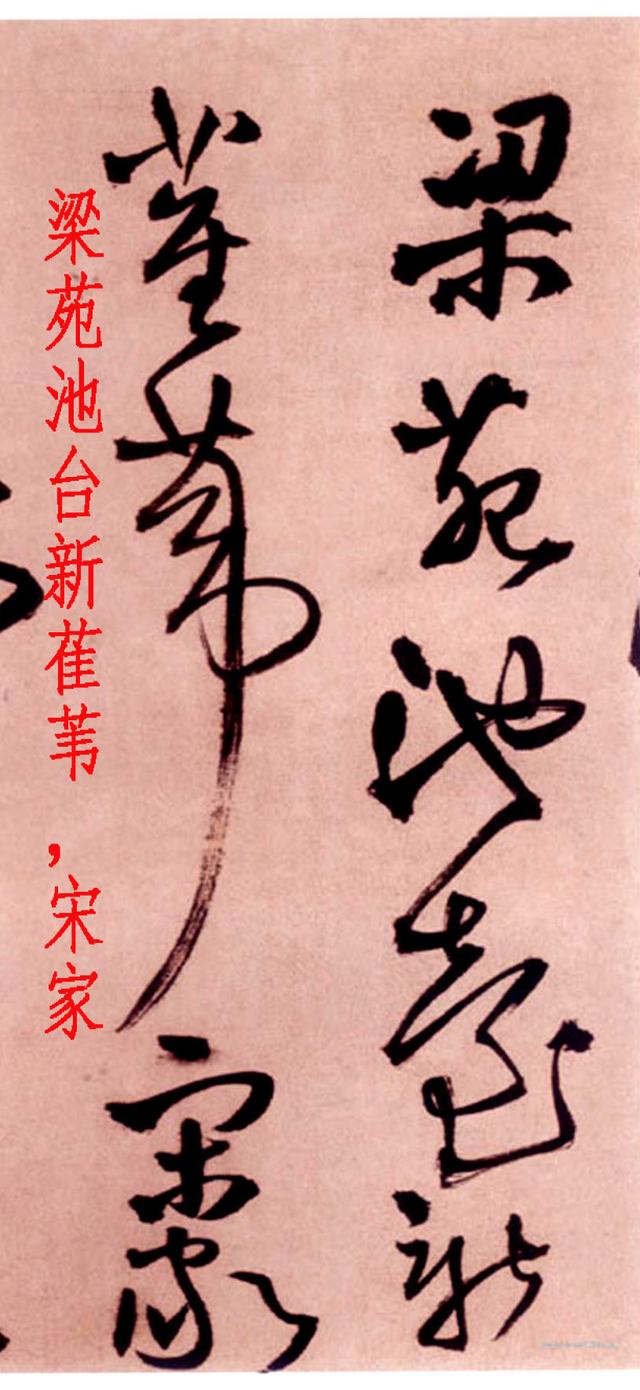 梁苑池臺新
萑葦宋家
梁苑池台新萑苇,宋家